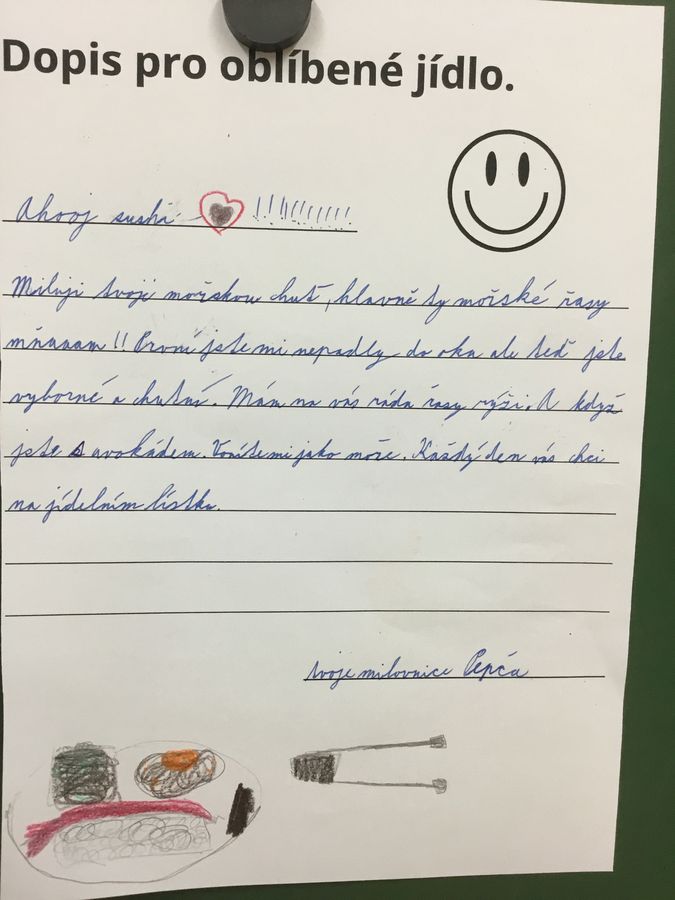 Dopis pro oblíbené jídlo.
Ahooj sushi !!!!!!!!!!!
Miluji tvoji mořskou chuť, hlavně ty mořské řasy
mňaaam!! První jste mi nepadly do oka ale teď jste
vyborné a chutné. Mám na vás ráda řasy rýži. A když
jste s avokádem. Voníte mi jako moře. Každý den vás chci
na jídelním lístku.
tvoje milovnice Pepča